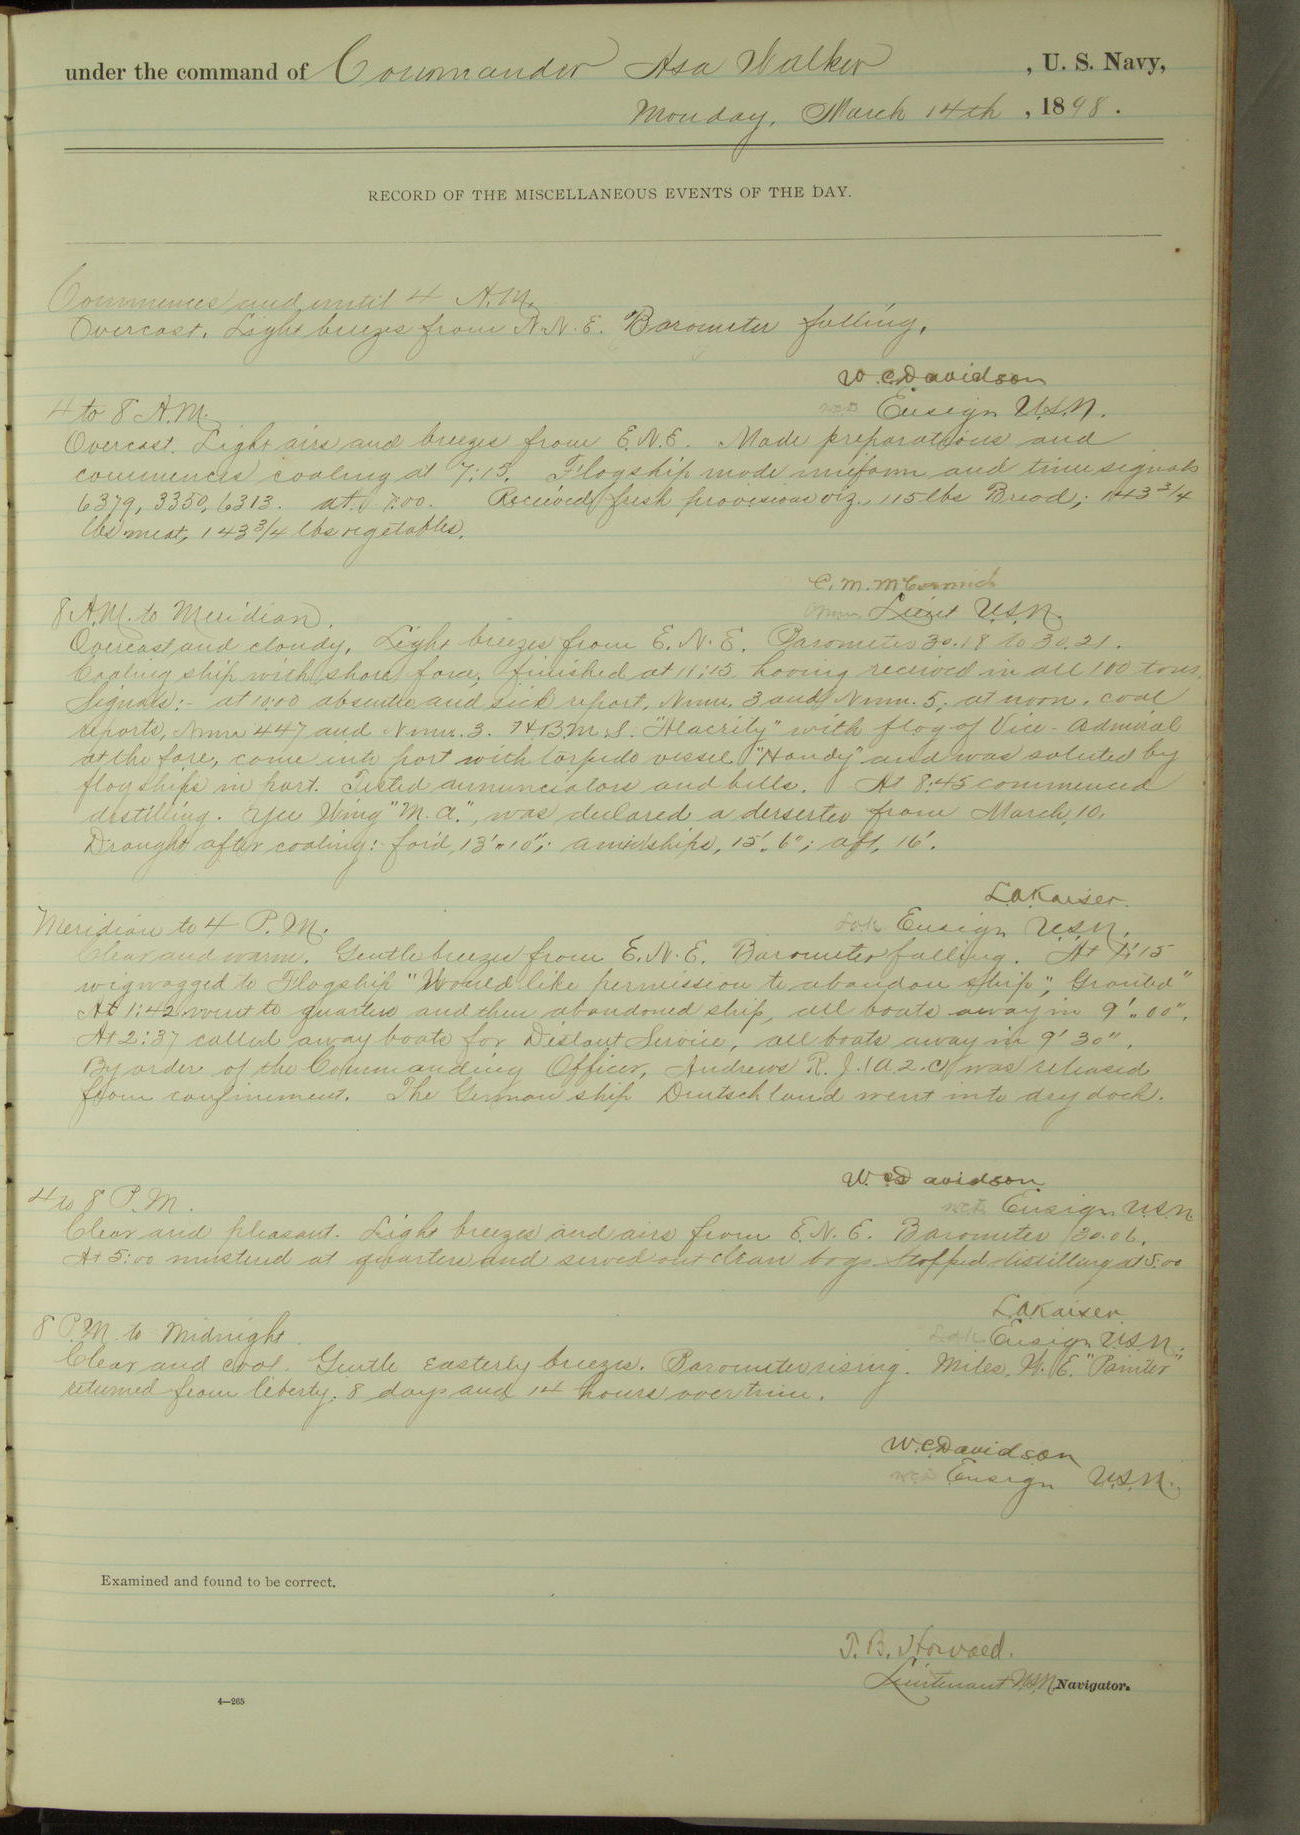 under the command of Commander Asa Walker, U. S. Navy,
Monday, March 14th, 1898.
RECORD OF THE MISCELLANEOUS EVENTS OF THE DAY.
Commences and until 4 A.M.
Overcast. Light breezes from N.N.E. Barometer falling.
W. C. Davidson
Ensign U.S.N.
4 to 8 A.M.
Overcast. Light airs and breezes from E.N.E. Made preparations and
commenced coaling at 7:15. Flagship made uniform and time signals
6379, 3350, 6313. at 7:00. Received fresh provisions viz., 115 lbs Bread; 143 3/4
lbs meat, 143 3/4 lbs vegetables.
C. M. McCormick
Lieut U.S.N.
8 A.M. to Meridian.
Overcast and cloudy. Light breezes from E.N.E. Barometer 30.18 to 30.21.
Coaling ship with shore force; finished at 11:15 having received in all 100 tons.
Signals:- at 10:00 absentee and sick report, Num. 3 and Num. 5; at noon, coal
reports, Num 447 and Num. 3. H.B.M.S. "Alacrity" with flag of Vice-Admiral
at the fore, came into port with torpedo vessel "Handy" and was saluted by
flagships in port. Tested annunciators and bells. At 8:45 commenced
distilling. Yee Wing "M.a.", was declared a deserter from March 10.
Draught after coaling: for'd, 13'.10"; amidships, 15'.6"; aft, 16'.
L. A. Kaiser.
Ensign U.S.N.
Meridian to 4 P.M.
Clear and warm. Gentle breezes from E.N.E. Barometer falling. At 1:15
wigwagged to Flagship "Would like permission to abandon ship"; Granted"
At 1:42 went to quarters and then abandoned ship, all boats away in 9'.00".
At 2:37 called away boats for Distant Service, all boats away in 9' 30".
By order of the Commanding Officer, Andrews R. J. (A.2.C) was released
from confinement. The German ship Deutschland went into dry dock.
W. C. Davidson
Ensign U.S.N
4 to 8 P.M.
Clear and pleasant. Light breezes and airs from E.N.E. Barometer 30.06.
At 5:00 mustered at quarters and served out clean bags. Stopped distilling at 5:00
L. A. Kaiser
Ensign U.S.N.
8 P.M. to Midnight.
Clear and cool. Gentle Easterly breezes. Barometer rising. Miles, W. E. "Painter"
returned from liberty, 8 days and 14 hours over time.
W. C. Davidson
Ensign U.S.N.
Examined and found to be correct.
T. B. Howard.
Lieutenant U.S.N. Navigator.
4—265